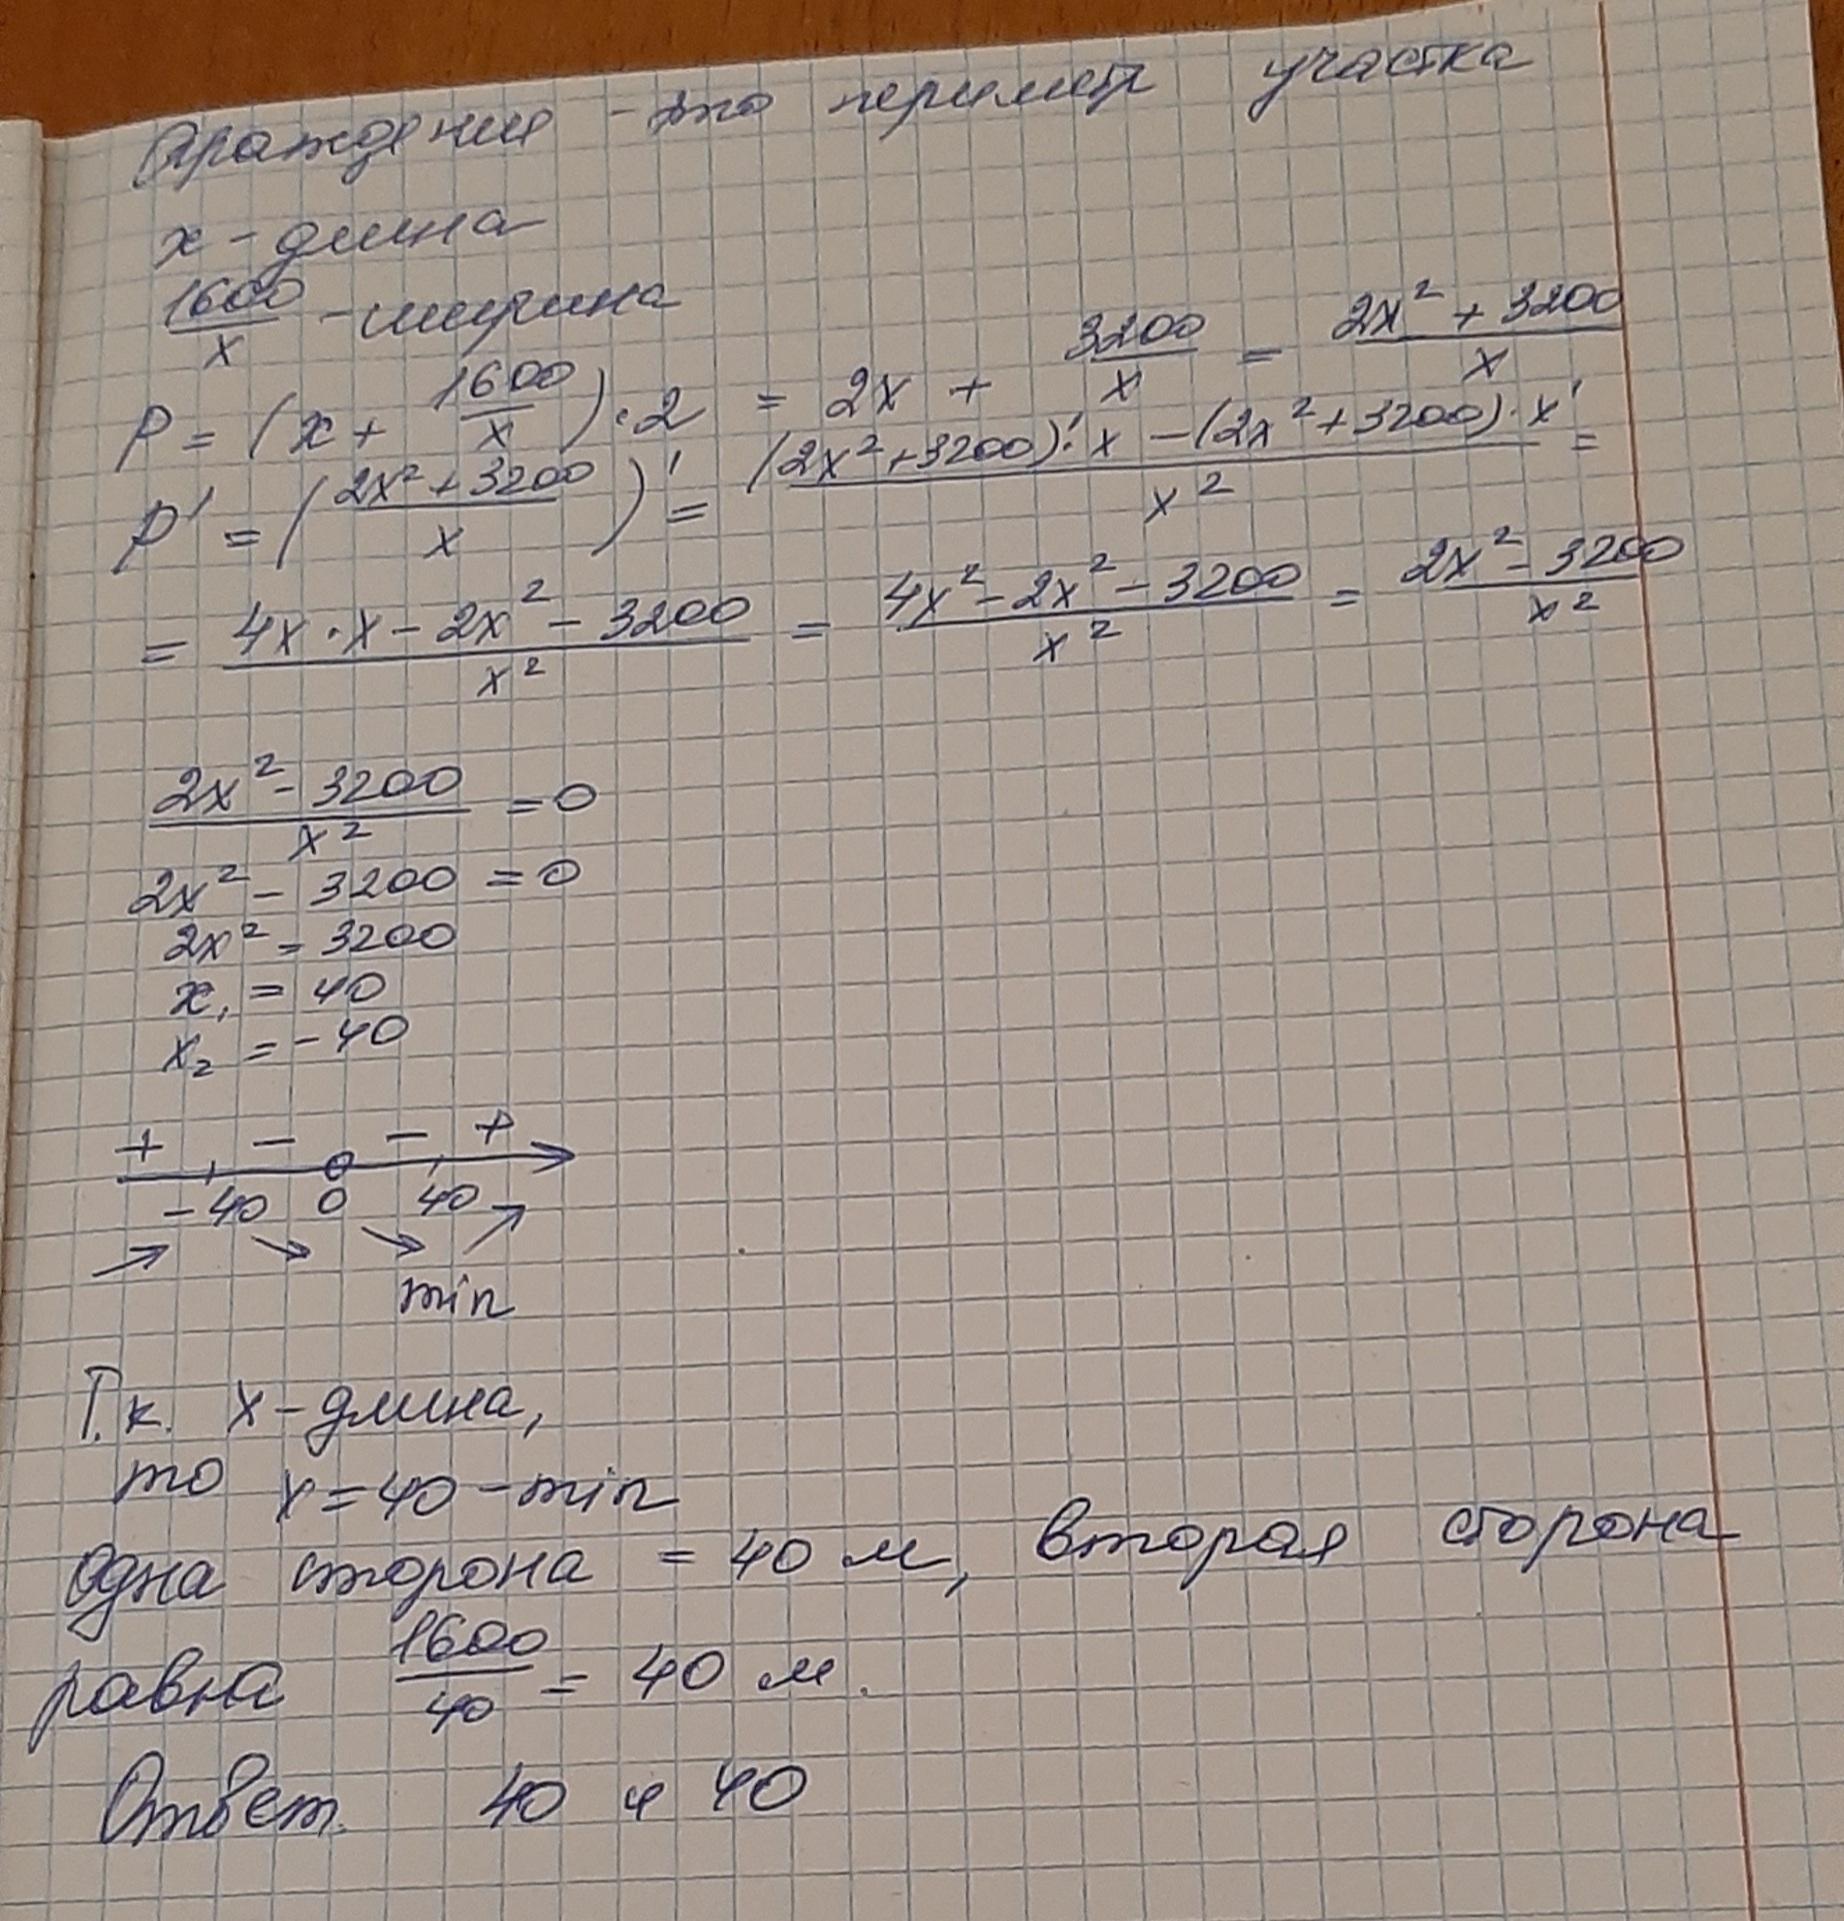 Ограждение - это периметр участка
x - длина
1600/x - ширина
P = (x + 1600/x) · 2 = 2x + 3200/x = (2x² + 3200)/x
P' = ((2x² + 3200)/x)' = ((2x² + 3200)' · x - (2x² + 3200) · x')/x² =
= (4x · x - 2x² - 3200)/x² = (4x² - 2x² - 3200)/x² = (2x² - 3200)/x²
(2x² - 3200)/x² = 0
2x² - 3200 = 0
2x² = 3200
x₁ = 40
x₂ = -40
+ - - +
-40 0 40
min
Т.к. x - длина,
то x = 40 - min
Одна сторона = 40 м, вторая сторона
равна 1600/40 = 40 м.
Ответ. 40 и 40